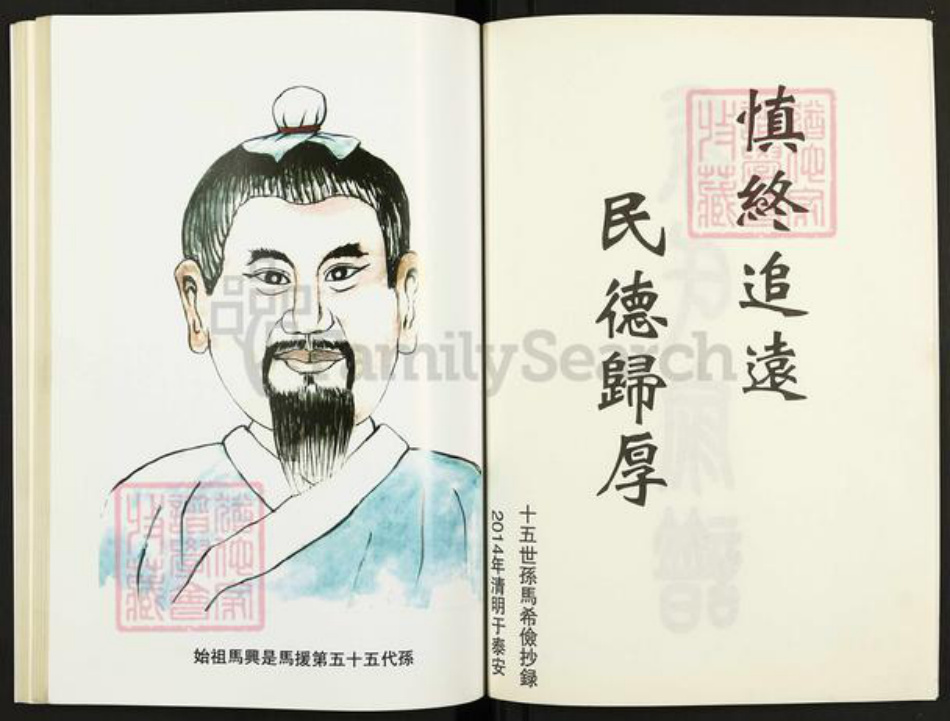 始祖馬興是馬援第五十五代孫
慎終追遠
民德歸厚
十五世孫馬希儉抄録
2014年清明于泰安
FamilySearch